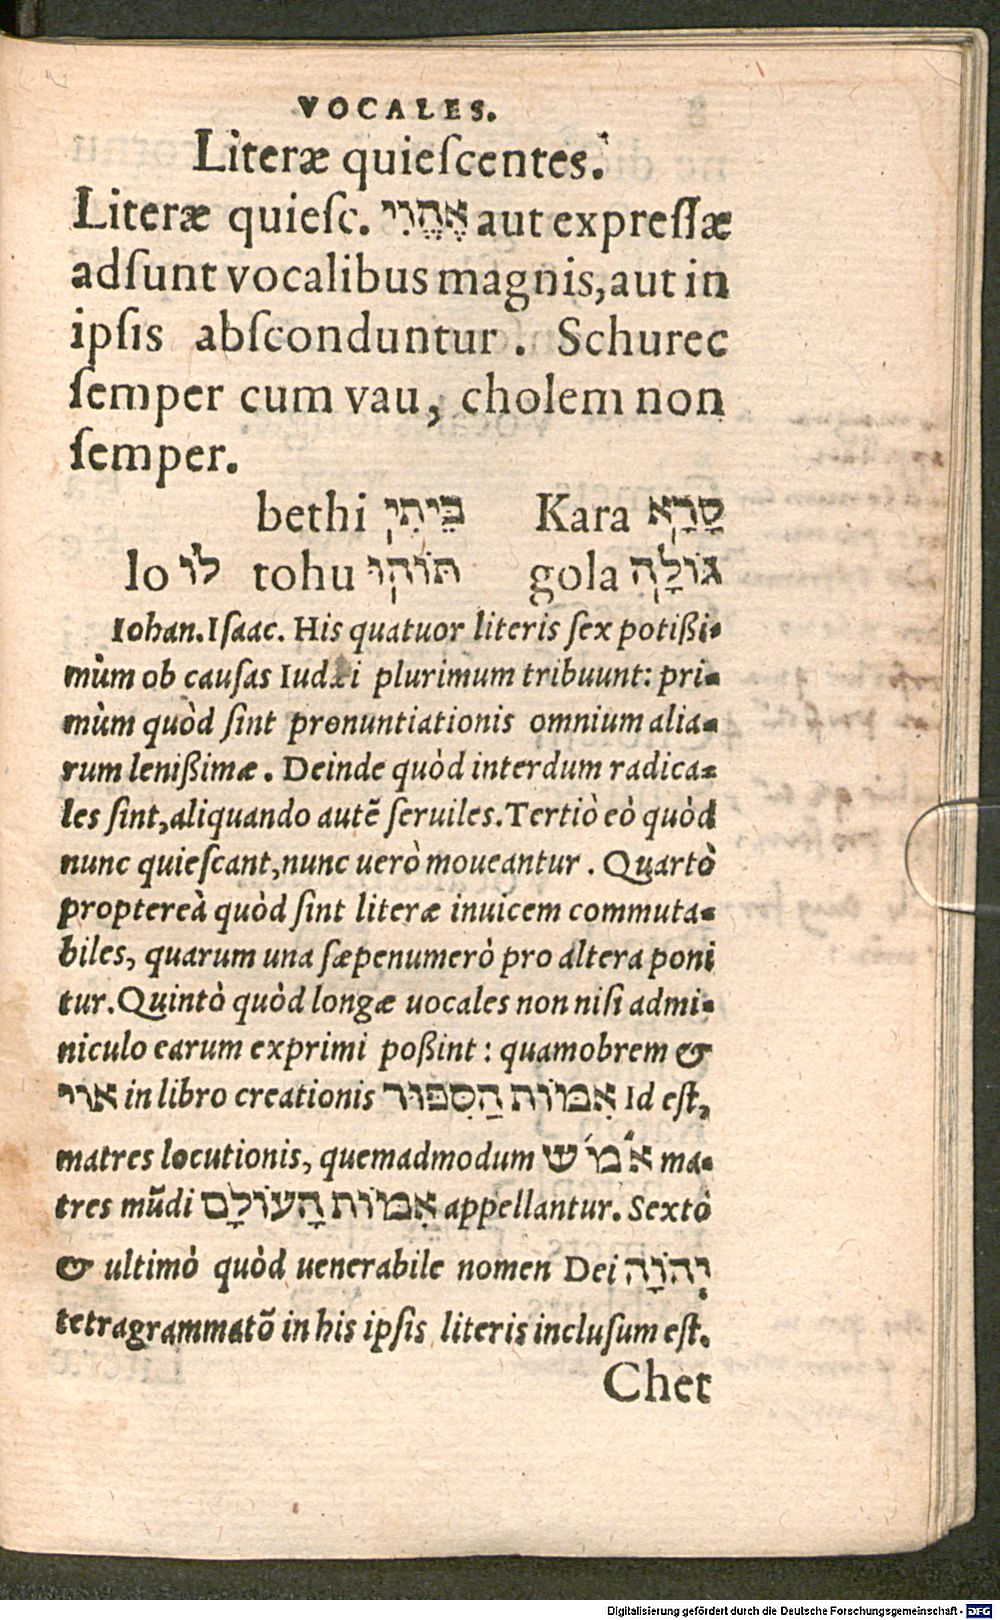 VOCALES.
Literæ quieſcentes.
Literæ quieſc. אֶהֱוִי aut expreſſæ
adſunt vocalibus magnis, aut in
ipſis abſconduntur. Schurec
ſemper cum vau, cholem non
ſemper.
bethi בֵּיתִי Kara קָרָא
lo לוֹ tohu תּוֹהוּ gola גּוֹלָה
Iohan. Iſaac. His quatuor literis ſex potißi-
mùm ob cauſas Iudæi plurimum tribuunt: pri-
mùm quòd ſint pronuntiationis omnium alia-
rum lenißimæ. Deinde quòd interdum radica-
les ſint, aliquando autẽ ſeruiles. Tertiò eò quòd
nunc quieſcant, nunc uerò moueantur. Quartò
propterеà quòd ſint literæ inuicem commuta-
biles, quarum una ſæpenumerò pro altera poni
tur. Quintò quòd longæ uocales non niſi admi-
niculo earum exprimi poßint: quamobrem &
אוי in libro creationis אִמּוֹת הַסִּפּוּר Id eſt,
matres locutionis, quemadmodum א מ ש ma-
tres mũdi אִמּוֹת הָעוֹלָם appellantur. Sextò
& ultimò quòd uenerabile nomen Dei יְהוָֹה
tetragrammatõ in his ipſis literis incluſum eſt.
Chet
Digitalisierung gefördert durch die Deutsche Forschungsgemeinschaft - DFG